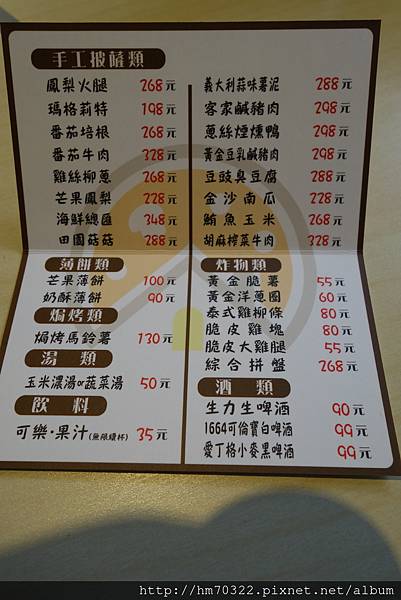 手工披薩類
鳳梨火腿 268元
瑪格莉特 198元
番茄培根 268元
番茄牛肉 328元
雞絲柳蔥 268元
芒果鳳梨 228元
海鮮總匯 348元
田園菇菇 288元
義大利蒜味薯泥 288元
客家鹹豬肉 298元
蔥絲煙燻鴨 298元
黃金豆乳鹹豬肉 298元
豆豉臭豆腐 288元
金沙南瓜 228元
鮪魚玉米 268元
胡麻榨菜牛肉 328元
薄餅類
芒果薄餅 100元
奶酥薄餅 90元
焗烤類
焗烤馬鈴薯 130元
湯類
玉米濃湯or蔬菜湯 50元
飲料
可樂·果汁(無限續杯) 35元
炸物類
黃金脆薯 55元
黃金洋蔥圈 60元
泰式雞柳條 80元
脆皮雞塊 80元
脆皮大雞腿 55元
綜合拼盤 268元
酒類
生力生啤酒 90元
1664可倫寶白啤酒 99元
愛丁格小麥黑啤酒 99元
http://hm70322.pixnet.net/album